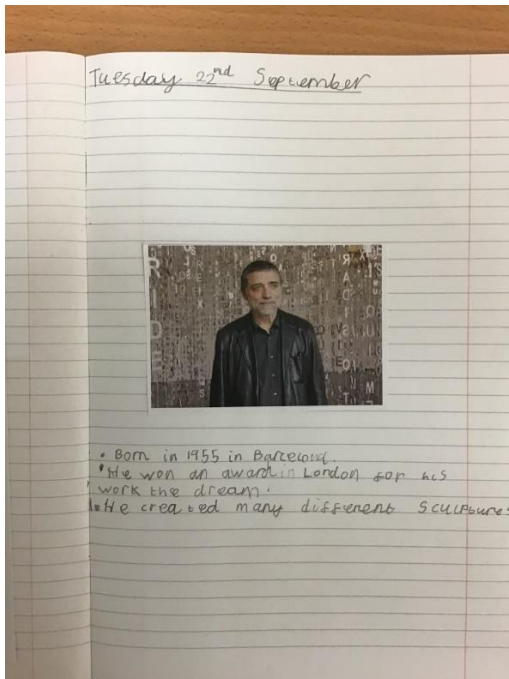 Tuesday 22nd September
R
I
D
E
• Born in 1955 in Barcelona.
• He won an award in London for his
work the dream.
• He created many different sculptures